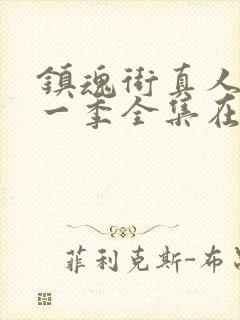 鎮魂街真人
一季全集在
菲利克斯-布